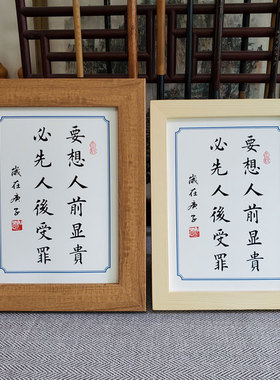 要想人前显貴
必先人後受罪
歲在庚子
要想人前显貴
必先人後受罪
歲在庚子